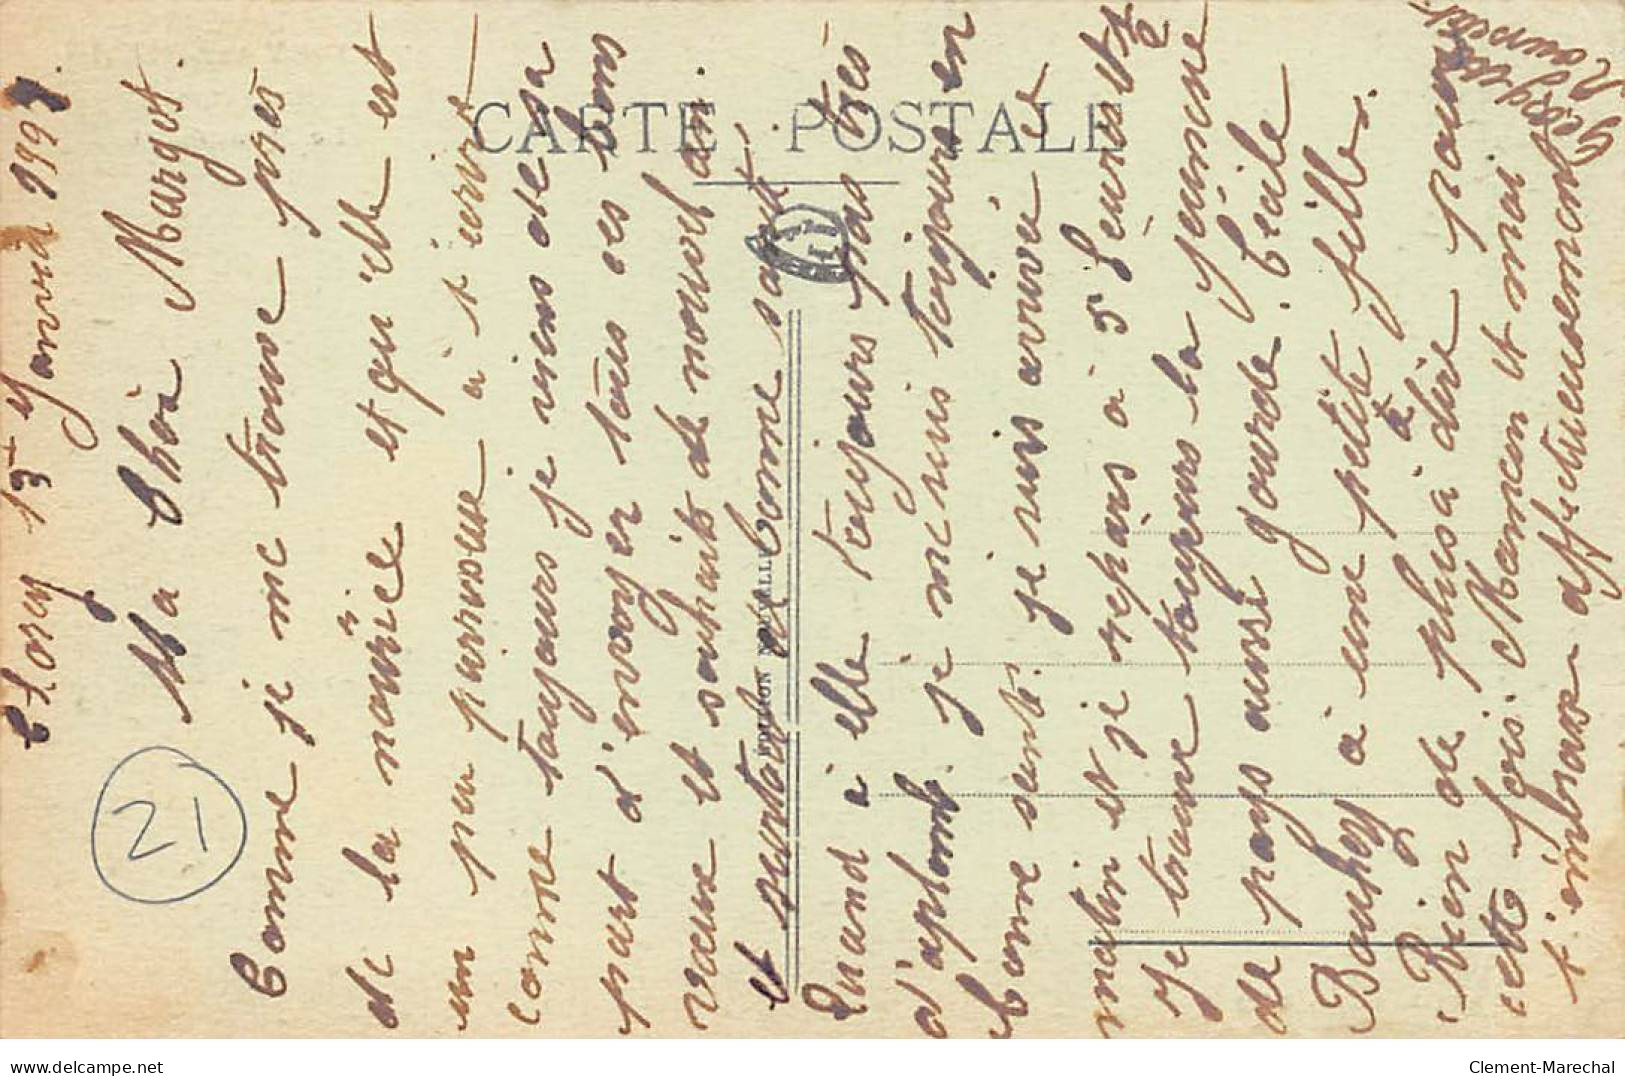 Ma Chère Margot.
Comme je me trouve près
de la nourrice et qu'elle est
un peu paresseuse à t'écrire
comme toujours je viens de sa
part d'envoyer tous ces bons
vœux et souhaits de nouvel an.
et surtout une bonne santé
Quand à elle toujours pas très
d'aplomb. je me suis toujours en
bonne santé. je suis arrivée ce
matin et je repars à 5 heures
Je trouve toujours la jeunesse
de pays aussi gourde. Cécile
Bouhey à une petite fille.
Rien de plus à dire pour
cette fois. Maman et moi
t'embrasse affectueusement
CARTE POSTALE
21
delcampe.net
Clement-Marechal